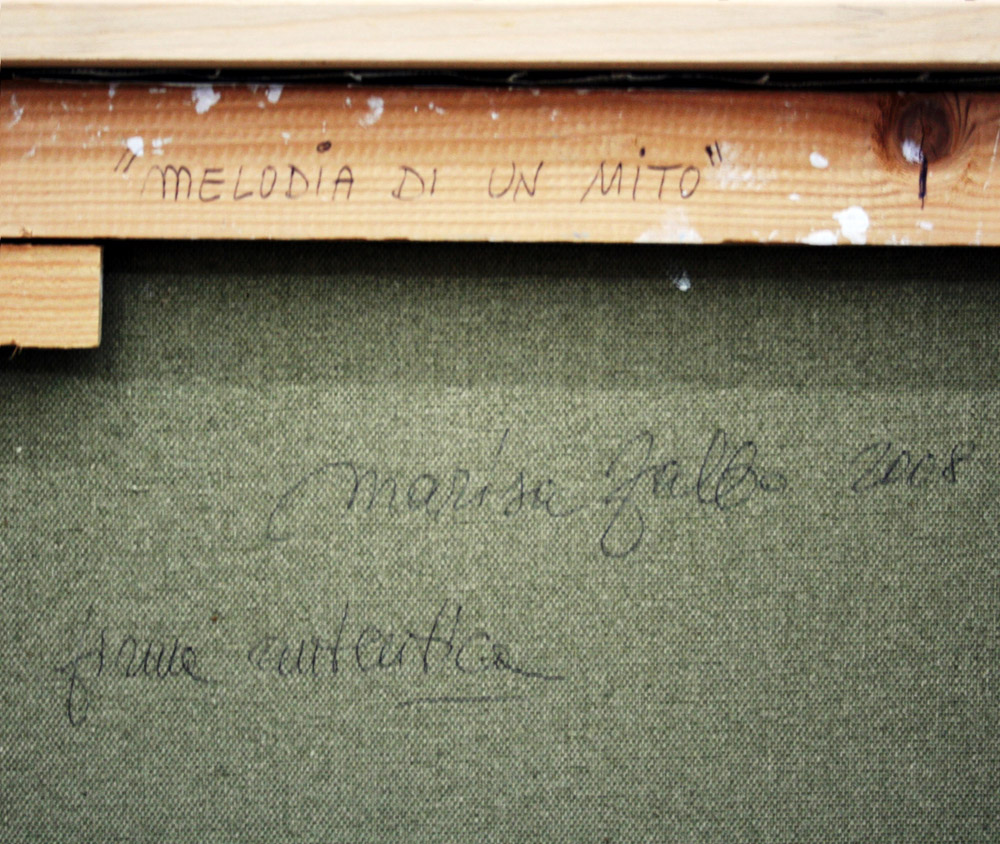 "MELODiA Di UN MiTO"
Marisa Gallo 2008
firma autentica